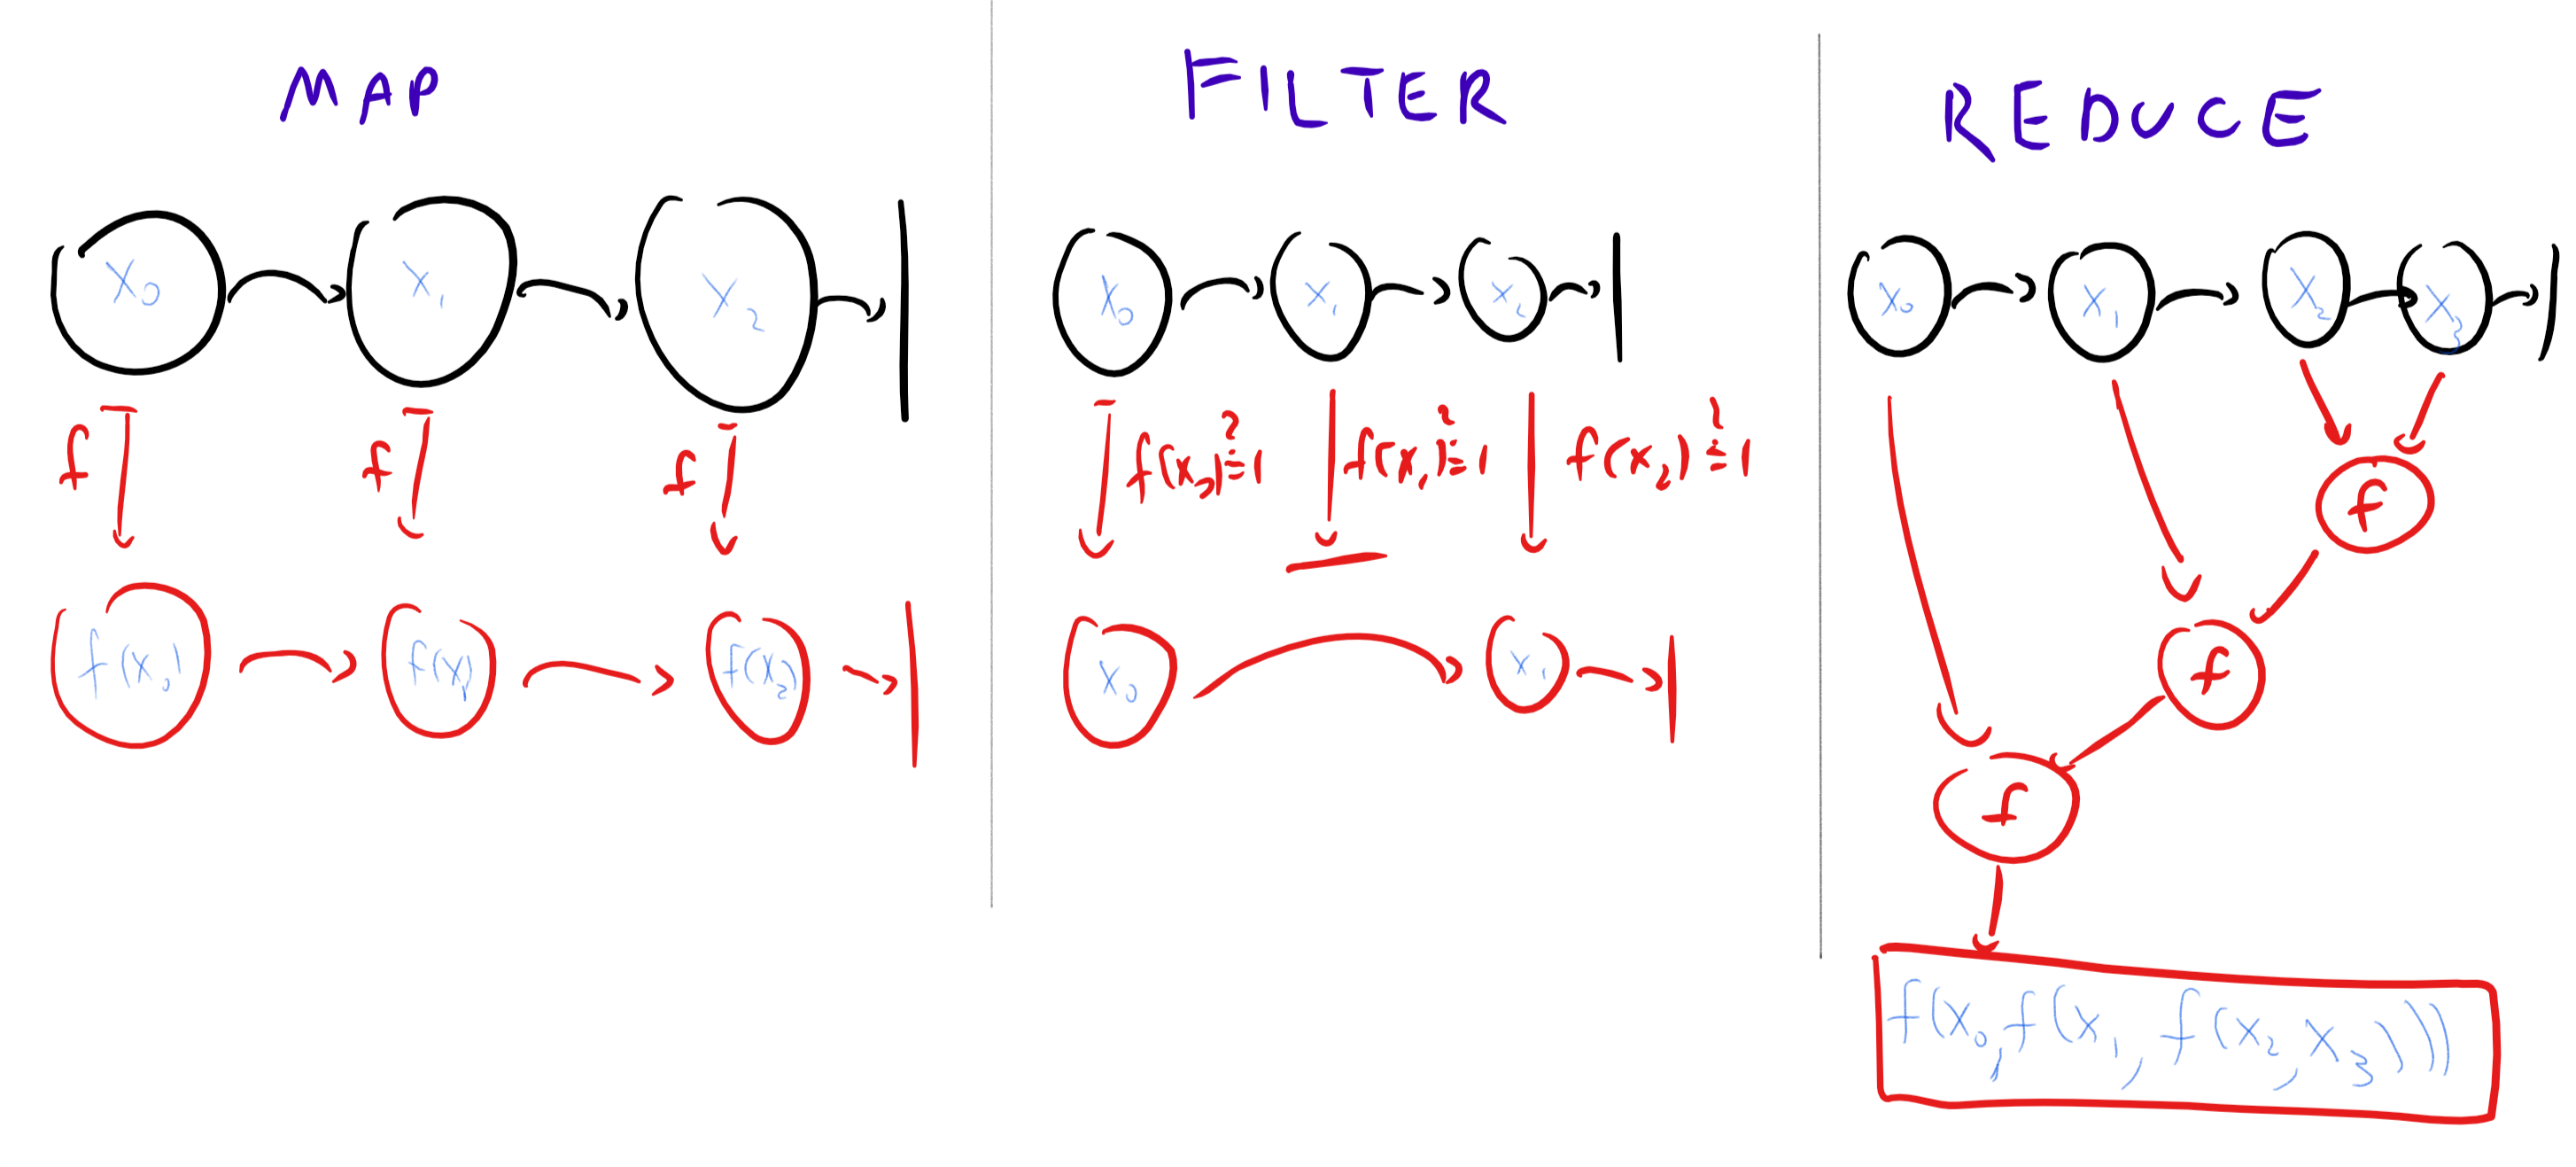 MAP
x₀ x₁ x₂
f f f
f(x₀) f(x₁) f(x₂)
FILTER
x₀ x₁ x₂
f(x₀)≟1 f(x₁)≟1 f(x₂)≟1
x₀ x₁
REDUCE
x₀ x₁ x₂ x₃
f
f
f
f(x₀,f(x₁,f(x₂,x₃)))